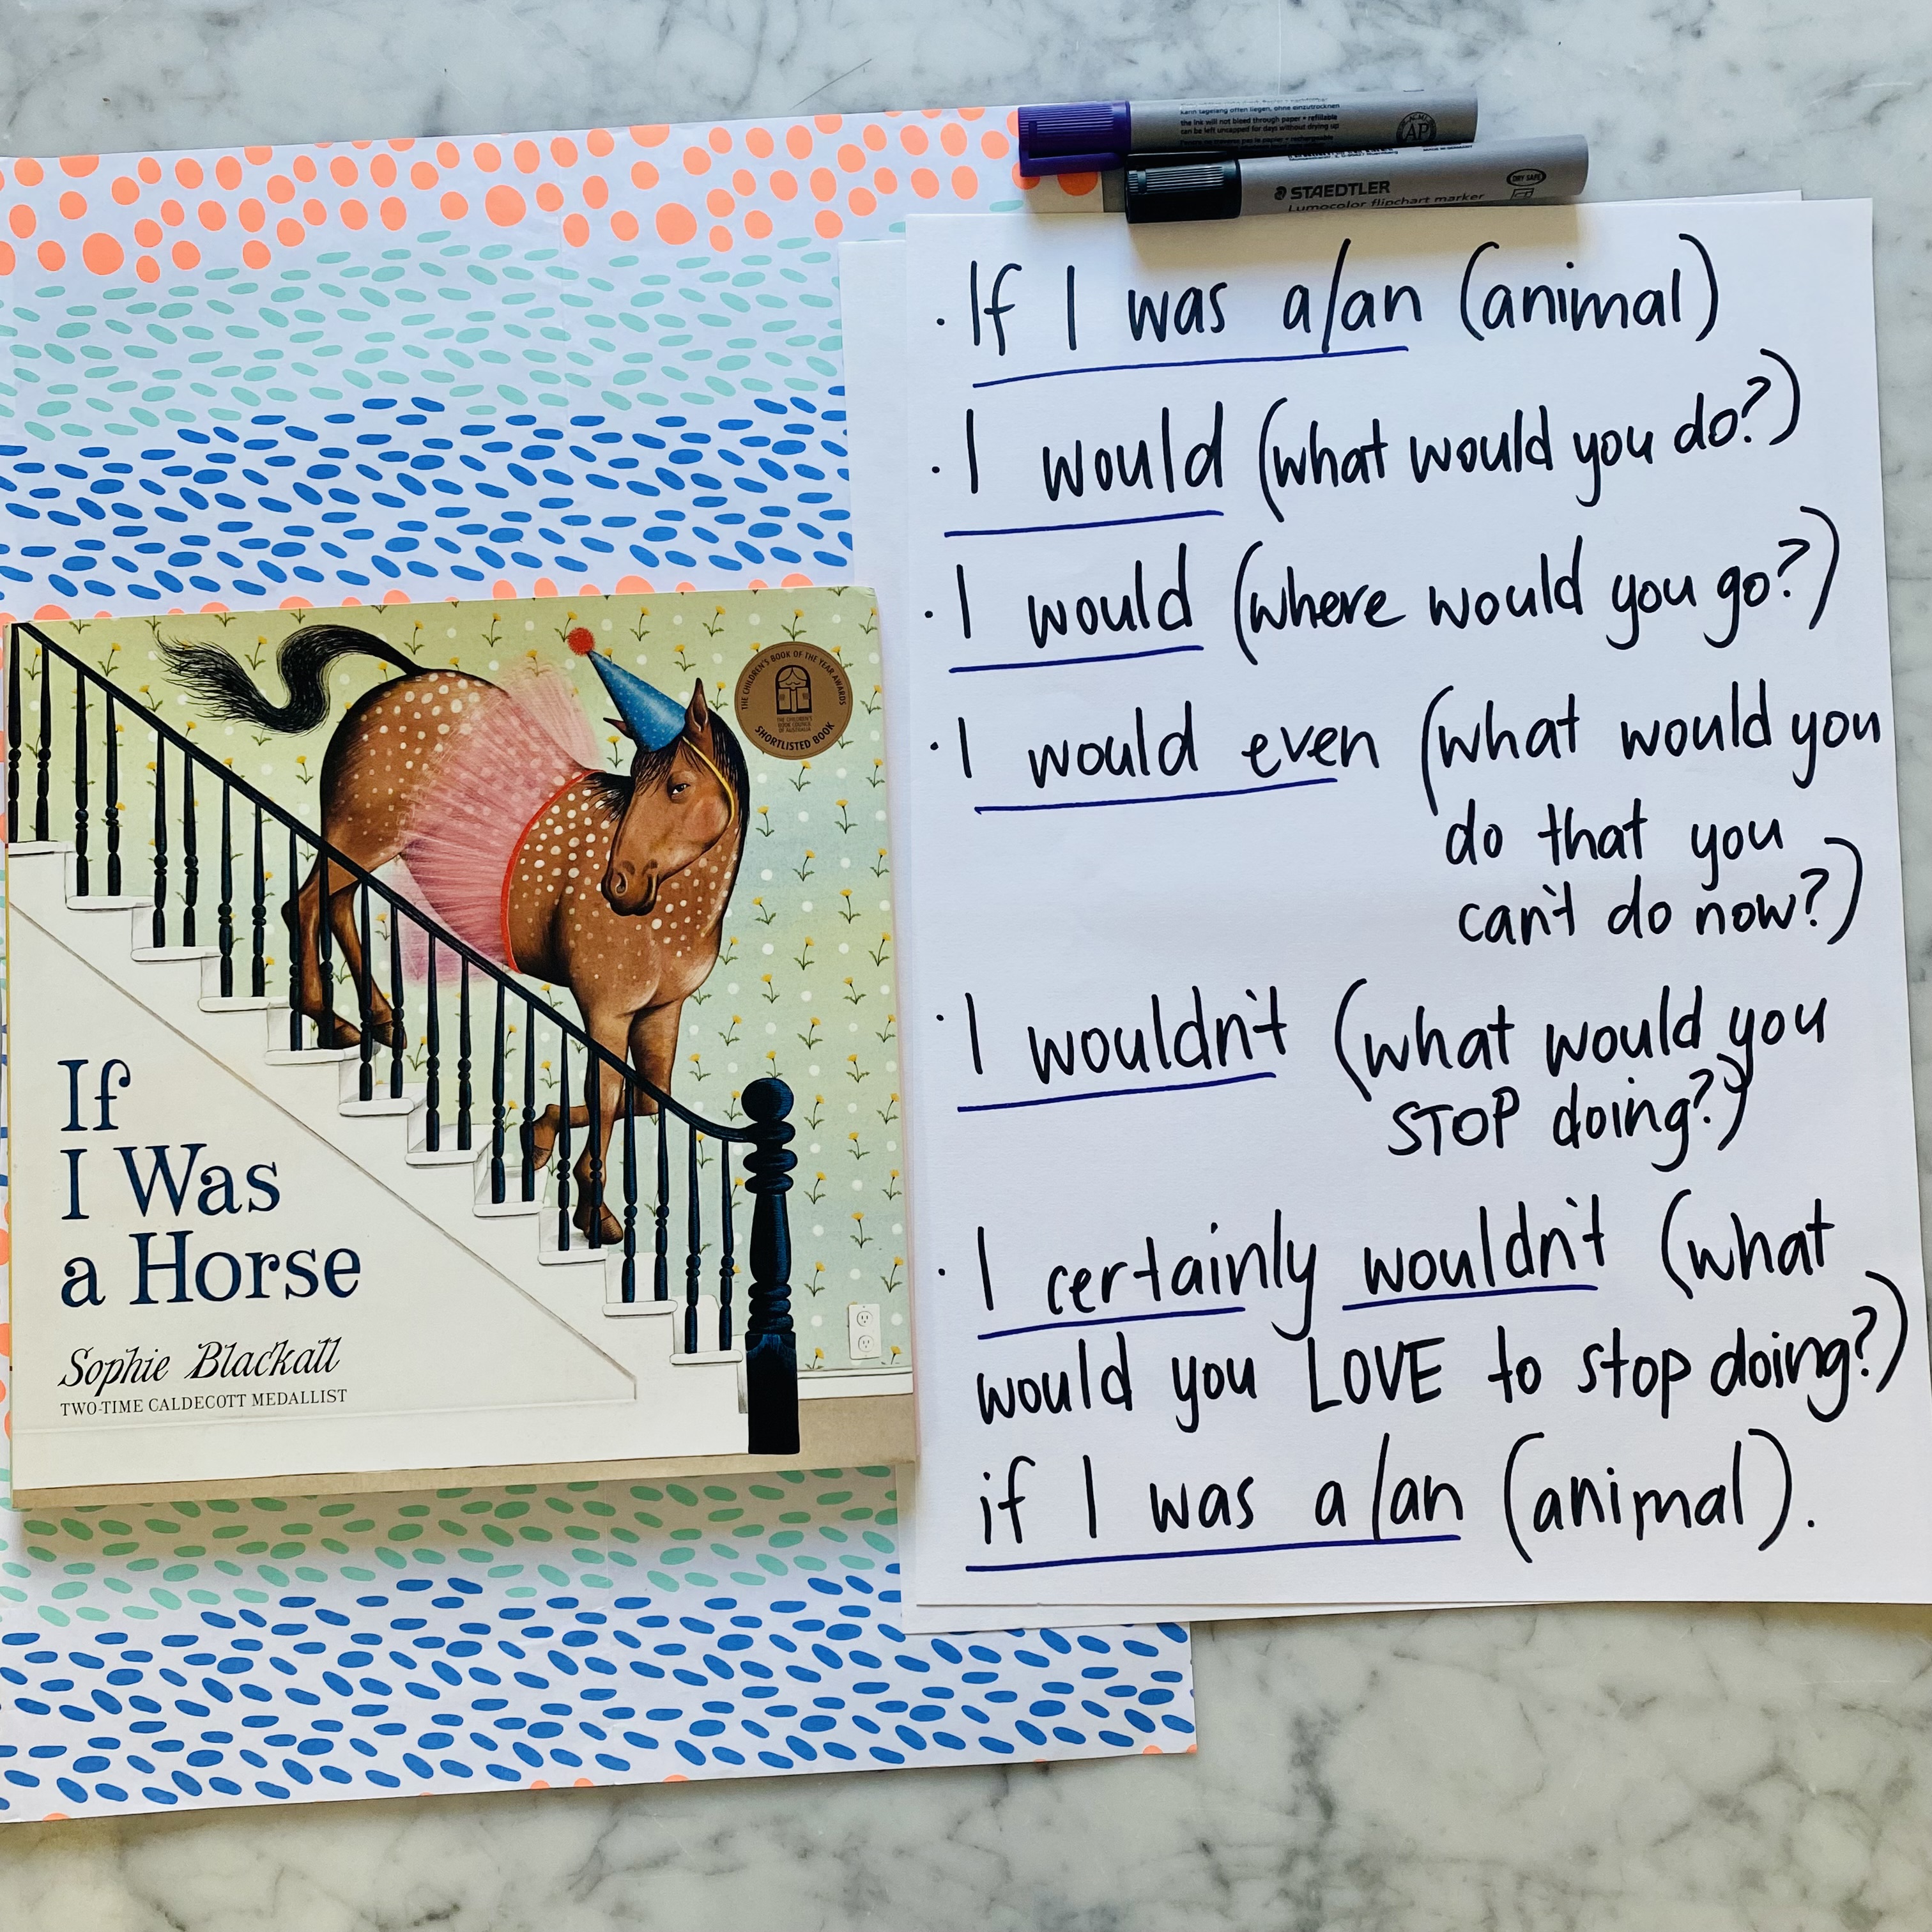 the ink will not bleed through paper • refillable
can be left uncapped for days without drying up
AP
STAEDTLER
Lumocolor flipchart marker
DRY SAFE
· If I was a/an (animal)
· I would (what would you do?)
· I would (where would you go?)
· I would even (what would you
do that you
can't do now?)
· I wouldn't (what would you
STOP doing?)
· I certainly wouldn't (what
would you LOVE to stop doing?)
if I was a/an (animal).
THE CHILDREN'S BOOK OF THE YEAR AWARDS
THE CHILDREN'S
BOOK COUNCIL
OF AUSTRALIA
SHORTLISTED BOOK
If
I Was
a Horse
Sophie Blackall
TWO-TIME CALDECOTT MEDALLIST